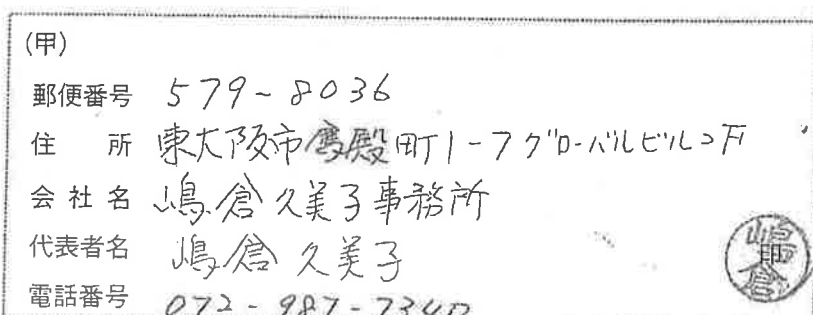 (甲)
郵便番号 579-8036
住所 東大阪市鷹殿町1-7グローバルビル2F
会社名 嶋倉久美子事務所
代表者名 嶋倉久美子
電話番号 072-987-7340
嶋倉
印